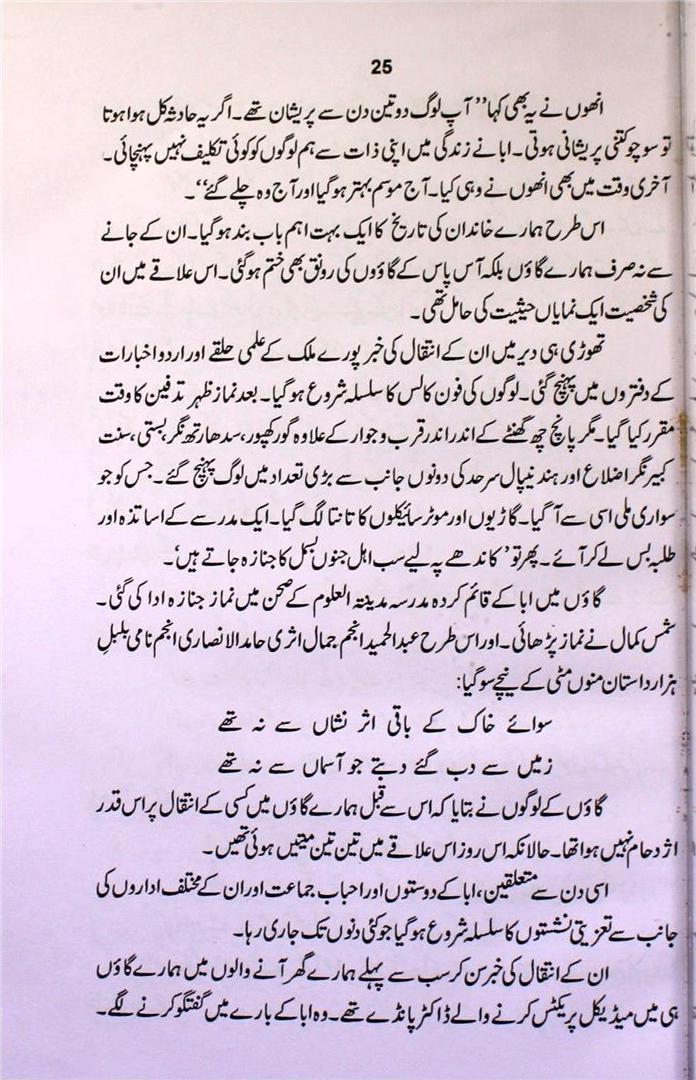 25
انھوں نے یہ بھی کہا ’’آپ لوگ دو تین دن سے پریشان تھے۔ اگر یہ حادثہ کل ہوا ہوتا
تو سوچو کتنی پریشانی ہوتی۔ ابا نے زندگی میں اپنی ذات سے ہم لوگوں کو کوئی تکلیف نہیں پہنچائی۔
آخری وقت میں بھی انھوں نے وہی کیا۔ آج موسم بہتر ہو گیا اور آج وہ چلے گئے‘‘۔
اس طرح ہمارے خاندان کی تاریخ کا ایک بہت اہم باب بند ہو گیا۔ ان کے جانے
سے نہ صرف ہمارے گاؤں بلکہ آس پاس کے گاؤوں کی رونق بھی ختم ہو گئی۔ اس علاقے میں ان
کی شخصیت ایک نمایاں حیثیت کی حامل تھی۔
تھوڑی ہی دیر میں ان کے انتقال کی خبر پورے ملک کے علمی حلقے اور اردو اخبارات
کے دفتروں میں پہنچ گئی۔ لوگوں کی فون کالس کا سلسلہ شروع ہو گیا۔ بعد نماز ظہر تدفین کا وقت
مقرر کیا گیا۔ مگر پانچ چھ گھنٹے کے اندر اندر قرب و جوار کے علاوہ گورکھپور، سدھارتھ نگر، بستی، سنت
کبیر نگر اضلاع اور ہند نیپال سرحد کی دونوں جانب سے بڑی تعداد میں لوگ پہنچ گئے۔ جس کو جو
سواری ملی اسی سے آ گیا۔ گاڑیوں اور موٹر سائیکلوں کا تانتا لگ گیا۔ ایک مدرسے کے اساتذہ اور
طلبہ بس لے کر آئے۔ پھر تو ’کاندھے پہ لیے سب اہل جنوں بسمل کا جنازہ جاتے ہیں‘۔
گاؤں میں ابا کے قائم کردہ مدرسہ مدینۃ العلوم کے صحن میں نماز جنازہ ادا کی گئی۔
شمس کمال نے نماز پڑھائی۔ اور اس طرح عبدالحمید انجم جمال اثری حامد الانصاری انجم نامی بلبلِ
ہزار داستان منوں مٹی کے نیچے سو گیا:
سوائے خاک کے باقی اثر نشاں سے نہ تھے
زمیں سے دب گئے دبتے جو آسماں سے نہ تھے
گاؤں کے لوگوں نے بتایا کہ اس سے قبل ہمارے گاؤں میں کسی کے انتقال پر اس قدر
اژدحام نہیں ہوا تھا۔ حالانکہ اس روز اس علاقے میں تین تین میتیں ہوئی تھیں۔
اسی دن سے متعلقین، ابا کے دوستوں اور احباب جماعت اور ان کے مختلف اداروں کی
جانب سے تعزیتی نشستوں کا سلسلہ شروع ہو گیا جو کئی دنوں تک جاری رہا۔
ان کے انتقال کی خبر سن کر سب سے پہلے ہمارے گھر آنے والوں میں ہمارے گاؤں
ہی میں میڈیکل پریکٹس کرنے والے ڈاکٹر پانڈے تھے۔ وہ ابا کے بارے میں گفتگو کرنے لگے۔